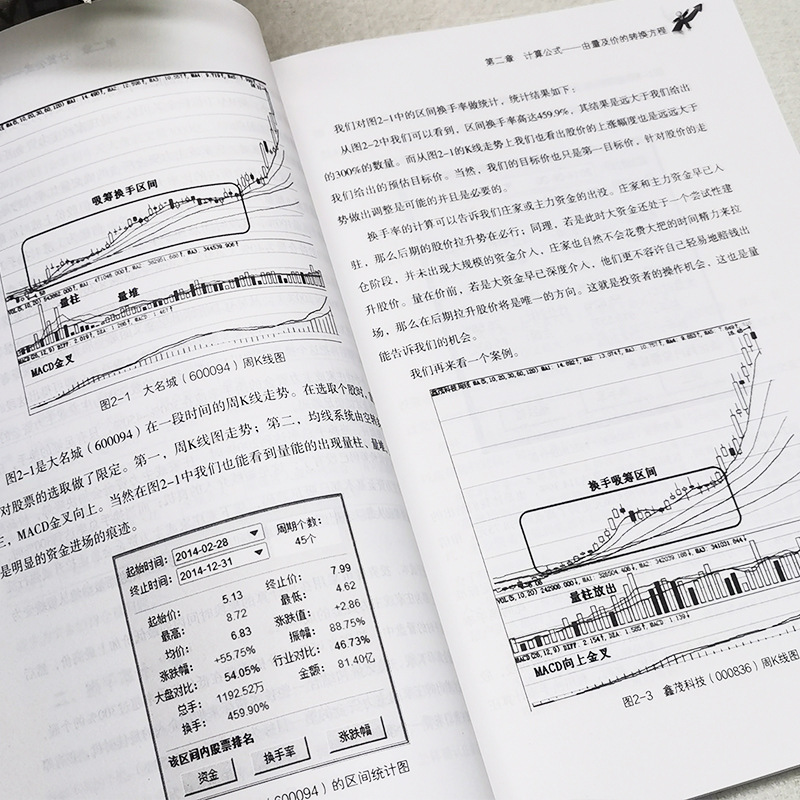 吸筹换手区间
量柱
量堆
MACD金叉
图2-1 大名城（600094）周K线图
图2-1是大名城（600094）在一段时间的周K线走势。在选取个股时，
对股票的选取做了限定。第一，周K线图走势；第二，均线系统由空转
三，MACD金叉向上。当然在图2-1中我们也能看到量能的出现量柱、量堆，
是明显的资金进场的痕迹。
起始时间: 2014-02-28 周期个数:
终止时间: 2014-12-31 45个
起始价: 5.13 终止价: 7.99
最高: 8.72 最低: 4.62
均价: 6.83 涨跌值: +2.86
涨跌幅: +55.75% 振幅: 88.75%
大盘对比: 54.05% 行业对比: 46.73%
总手: 1192.52万 金额: 81.40亿
换手: 459.90%
该区间内股票排名
资金 换手率 涨跌幅
（600094）的区间统计图
第二章 计算公式——由量及价的转换方程
我们对图2-1中的区间换手率做统计，统计结果如下：
从图2-2中我们可以看到，区间换手率高达459.9%，其结果是远大于我们给出
的300%的数量。而从图2-1的K线走势上我们也看出股价的上涨幅度也是远远大于
我们给出的预估目标价。当然，我们的目标价也只是第一目标价，针对股价的走
势做出调整是可能的并且是必要的。
换手率的计算可以告诉我们庄家或主力资金的出没。庄家和主力资金早已入
驻，那么后期的股价拉升势在必行；同理，若是此时大资金还处于一个尝试性建
仓阶段，并未出现大规模的资金介入，庄家也自然不会花费大把的时间精力来拉
升股价。量在价前，若是大资金早已深度介入，他们更不容许自己轻易地赔钱出
场，那么在后期拉升股价将是唯一的方向。这就是投资者的操作机会，这也是量
能告诉我们的机会。
我们再来看一个案例。
换手吸筹区间
量柱放出
MACD向上金叉
图2-3 鑫茂科技（000836）周K线图